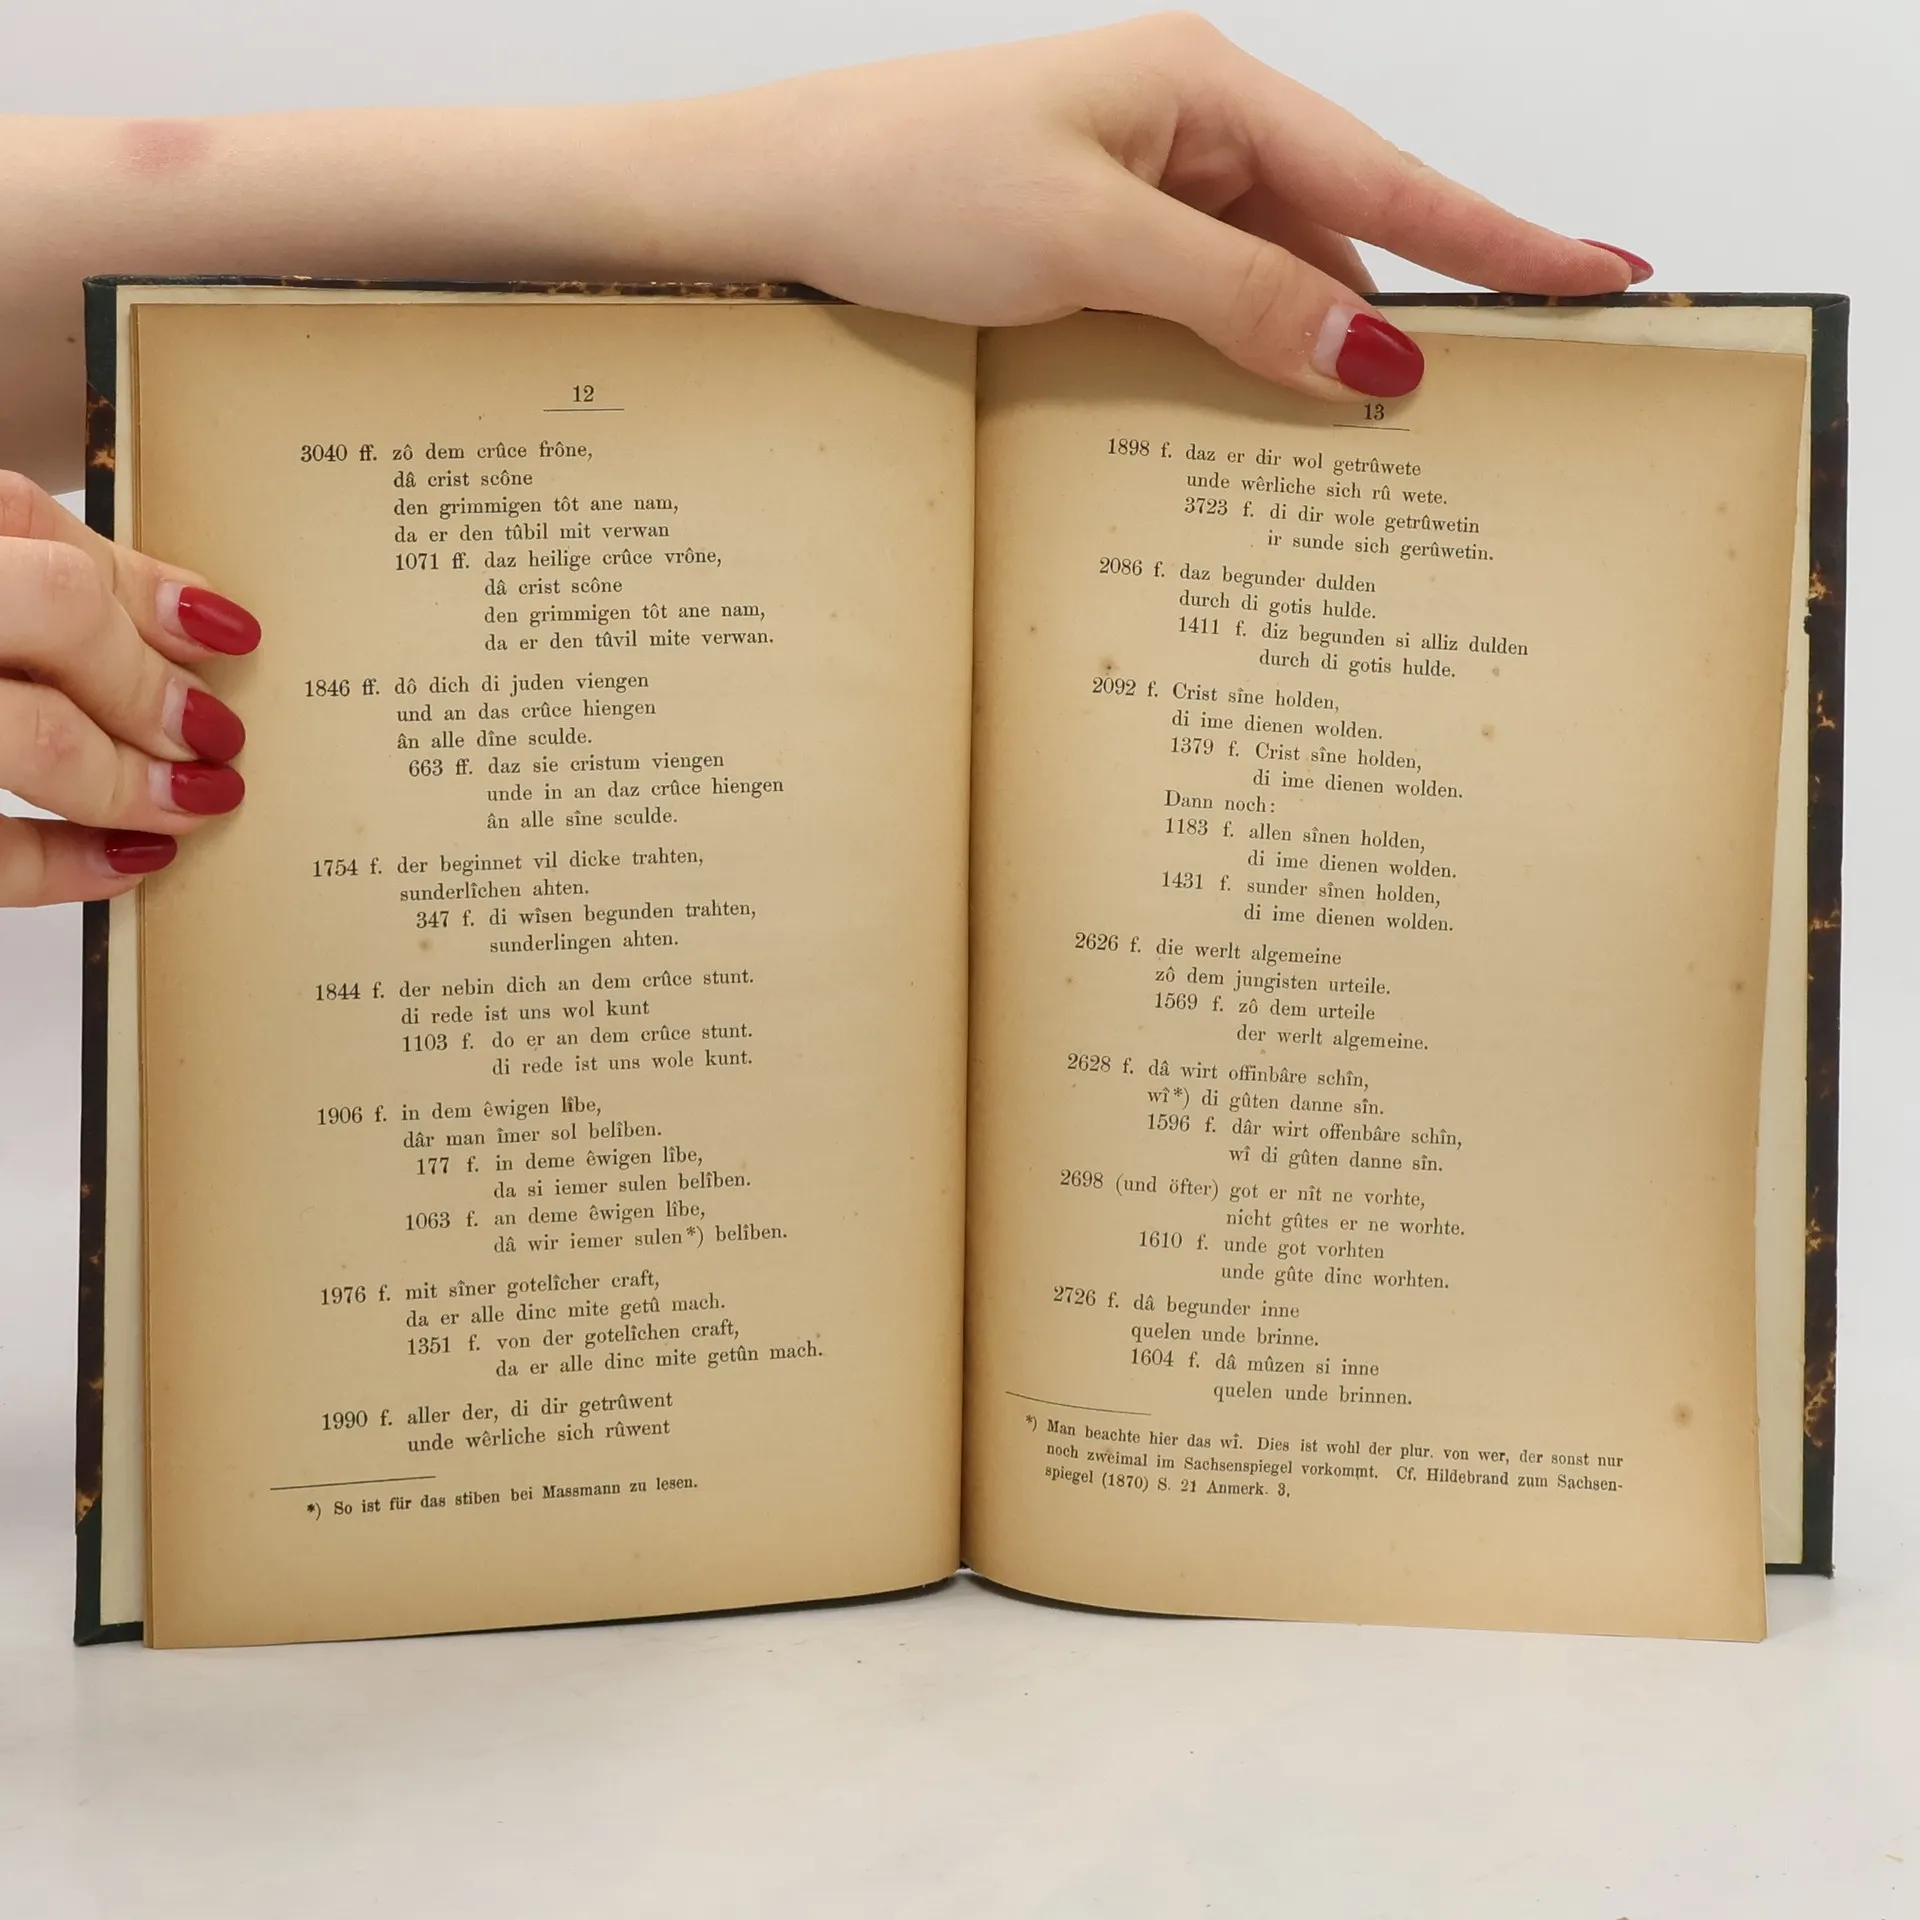 12
3040 ff. zô dem crûce frône,
dâ crist scône
den grimmigen tôt ane nam,
da er den tûbil mit verwan
1071 ff. daz heilige crûce vrône,
dâ crist scône
den grimmigen tôt ane nam,
da er den tûvil mite verwan.
1846 ff. dô dich di juden viengen
und an das crûce hiengen
ân alle dîne sculde.
663 ff. daz sie cristum viengen
unde in an daz crûce hiengen
ân alle sîne sculde.
1754 f. der beginnet vil dicke trahten,
sunderlîchen ahten.
347 f. di wîsen begunden trahten,
sunderlingen ahten.
1844 f. der nebin dich an dem crûce stunt.
di rede ist uns wol kunt
1103 f. do er an dem crûce stunt.
di rede ist uns wole kunt.
1906 f. in dem êwigen lîbe,
dâr man îmer sol belîben.
177 f. in deme êwigen lîbe,
da si iemer sulen belîben.
1063 f. an deme êwigen lîbe,
dâ wir iemer sulen*) belîben.
1976 f. mit sîner gotelîcher craft,
da er alle dinc mite getû mach.
1351 f. von der gotelîchen craft,
da er alle dinc mite getûn mach.
1990 f. aller der, di dir getrûwent
unde wêrliche sich rûwent
*) So ist für das stiben bei Massmann zu lesen.
13
1898 f. daz er dir wol getrûwete
unde wêrliche sich rû wete.
3723 f. di dir wole getrûwetin
ir sunde sich gerûwetin.
2086 f. daz begunder dulden
durch di gotis hulde.
1411 f. diz begunden si alliz dulden
durch di gotis hulde.
2092 f. Crist sîne holden,
di ime dienen wolden.
1379 f. Crist sîne holden,
di ime dienen wolden.
Dann noch:
1183 f. allen sînen holden,
di ime dienen wolden.
1431 f. sunder sînen holden,
di ime dienen wolden.
2626 f. die werlt algemeine
zô dem jungisten urteile.
1569 f. zô dem urteile
der werlt algemeine.
2628 f. dâ wirt offinbâre schîn,
wî*) di gûten danne sîn.
1596 f. dâr wirt offenbâre schîn,
wî di gûten danne sîn.
2698 (und öfter) got er nît ne vorhte,
nicht gûtes er ne worhte.
1610 f. unde got vorhten
unde gûte dinc worhten.
2726 f. dâ begunder inne
quelen unde brinne.
1604 f. dâ mûzen si inne
quelen unde brinnen.
*) Man beachte hier das wî. Dies ist wohl der plur. von wer, der sonst nur
noch zweimal im Sachsenspiegel vorkommt. Cf. Hildebrand zum Sachsen-
spiegel (1870) S. 21 Anmerk. 3,